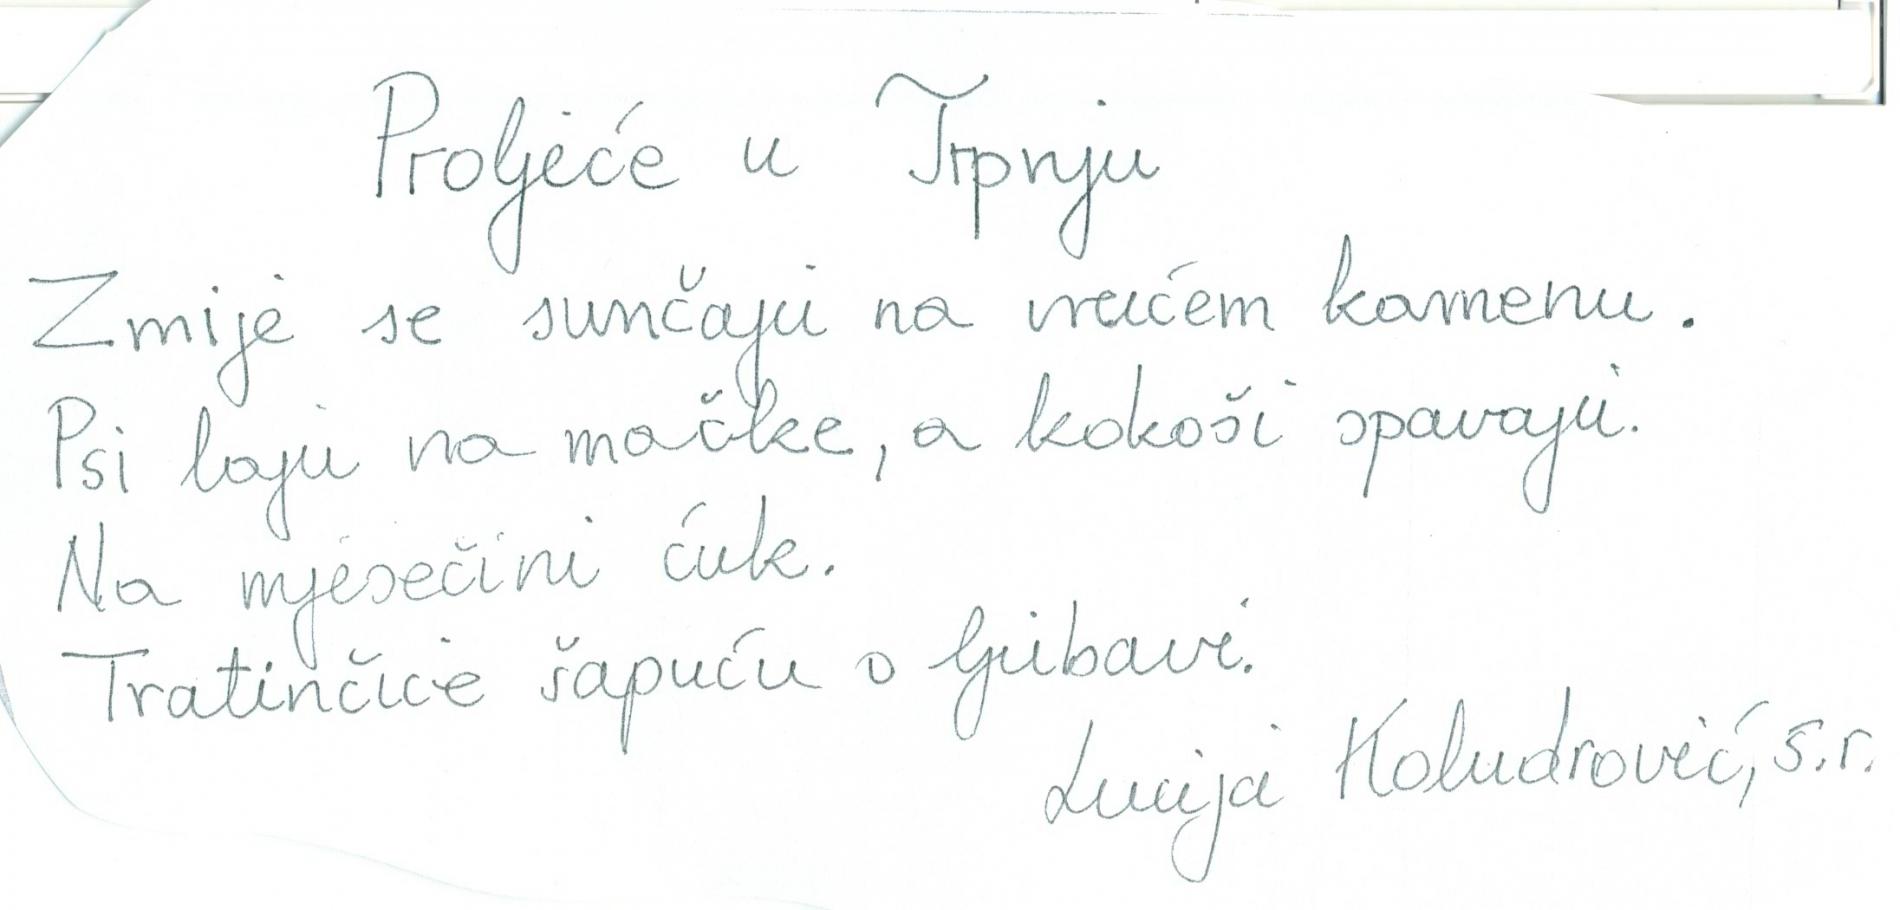 Proljeće u Trpnju
Zmije se sunčaju na vrućem kamenu.
Psi laju na mačke, a kokoši spavaju.
Na mjesečini ćuk.
Tratinčice šapuću o ljubavi.
Lucija Koludrović, s.r.